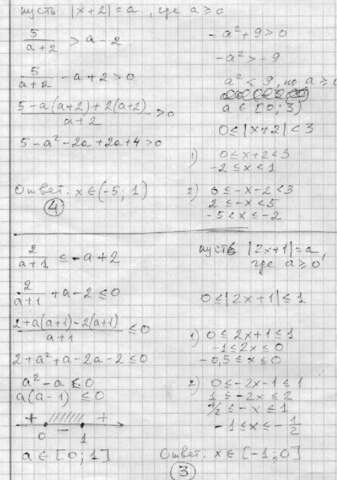 пусть |x+2| = a, где a ≥ 0
5/(a+2) > a-2
5/(a+2) - a+2 > 0
(5-a(a+2)+2(a+2))/(a+2) > 0
5-a²-2a+2a+4 > 0
-a²+9 > 0
-a² > -9
a² < 9, но a ≥ 0
a ∈ [0; 3)
0 ≤ |x+2| < 3
1) 0 ≤ x+2 < 3
-2 ≤ x < 1
2) 0 ≤ -x-2 < 3
2 ≤ -x < 5
-5 < x ≤ -2
Ответ. x ∈ (-5; 1)
4
2/(a+1) ≤ -a+2
2/(a+1) + a-2 ≤ 0
(2+a(a+1)-2(a+1))/(a+1) ≤ 0
2+a²+a-2a-2 ≤ 0
a²-a ≤ 0
a(a-1) ≤ 0
+ - +
0 1
a ∈ [0; 1]
пусть |2x+1| = a
где a ≥ 0
0 ≤ |2x+1| ≤ 1
1) 0 ≤ 2x+1 ≤ 1
-1 ≤ 2x ≤ 0
-0,5 ≤ x ≤ 0
2) 0 ≤ -2x-1 ≤ 1
1 ≤ -2x ≤ 2
1/2 ≤ -x ≤ 1
-1 ≤ x ≤ -1/2
Ответ. x ∈ [-1; 0]
3